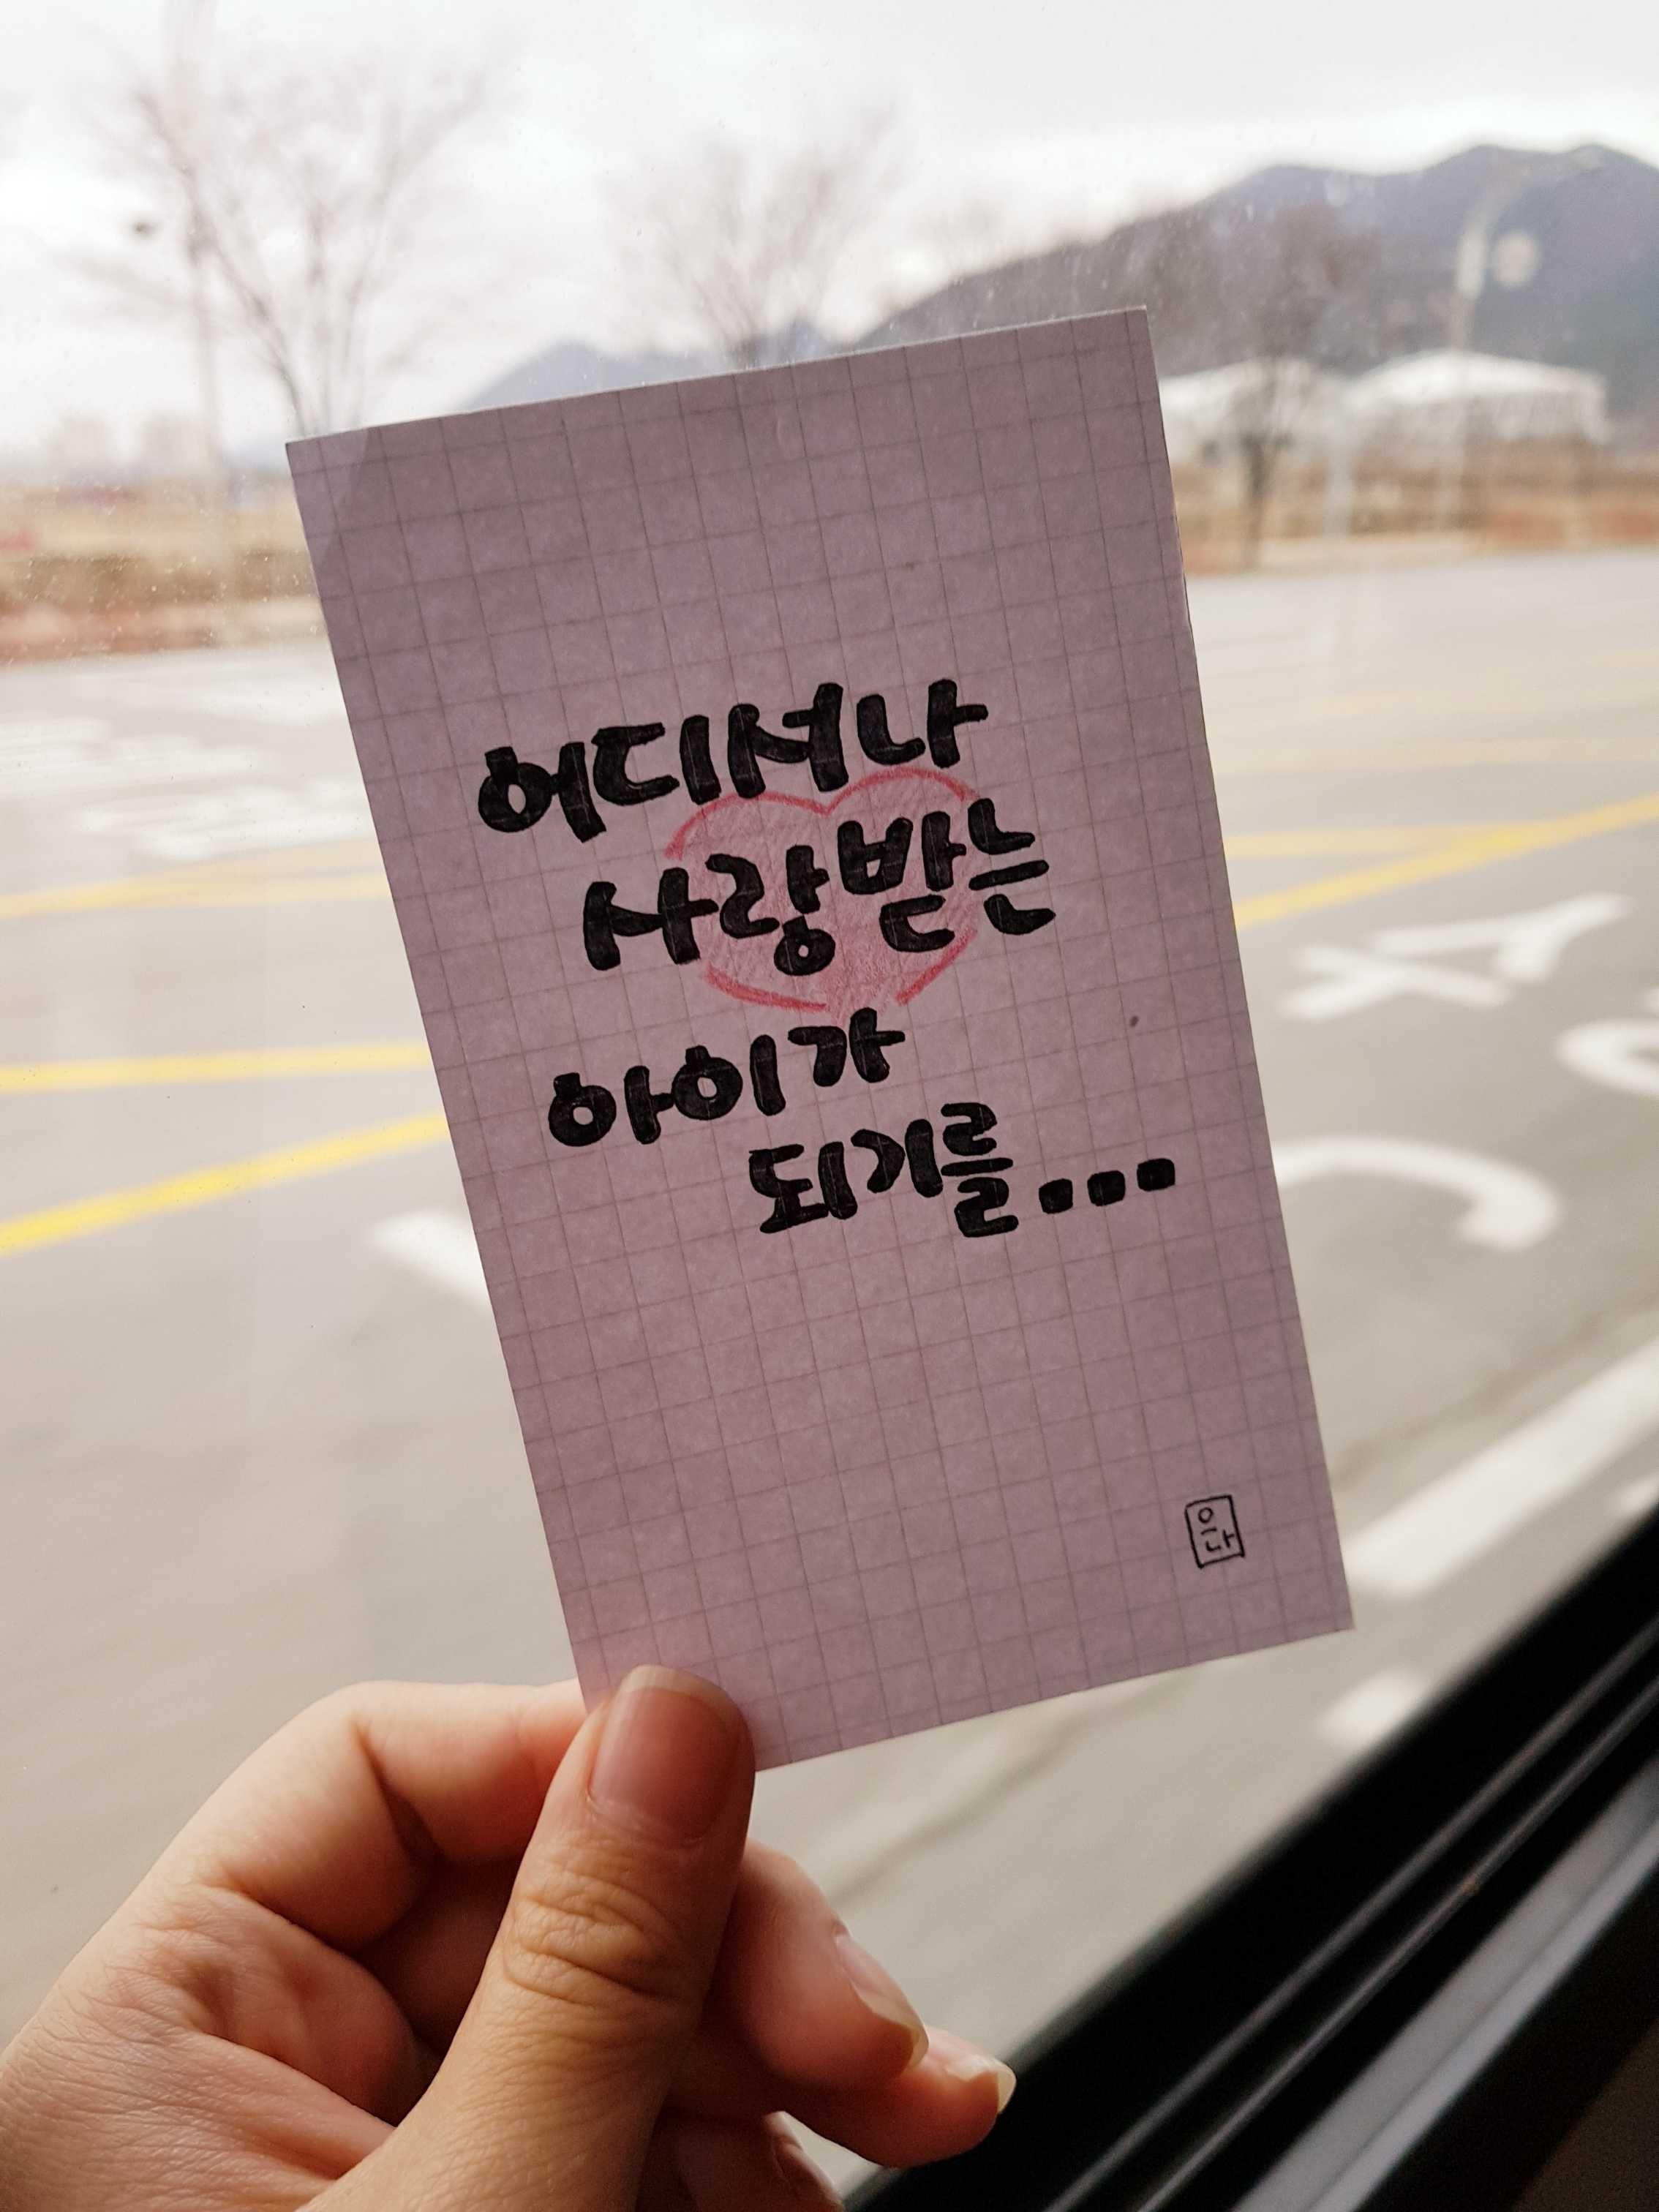 어디서나
사랑받는
아이가
되기를...
은나